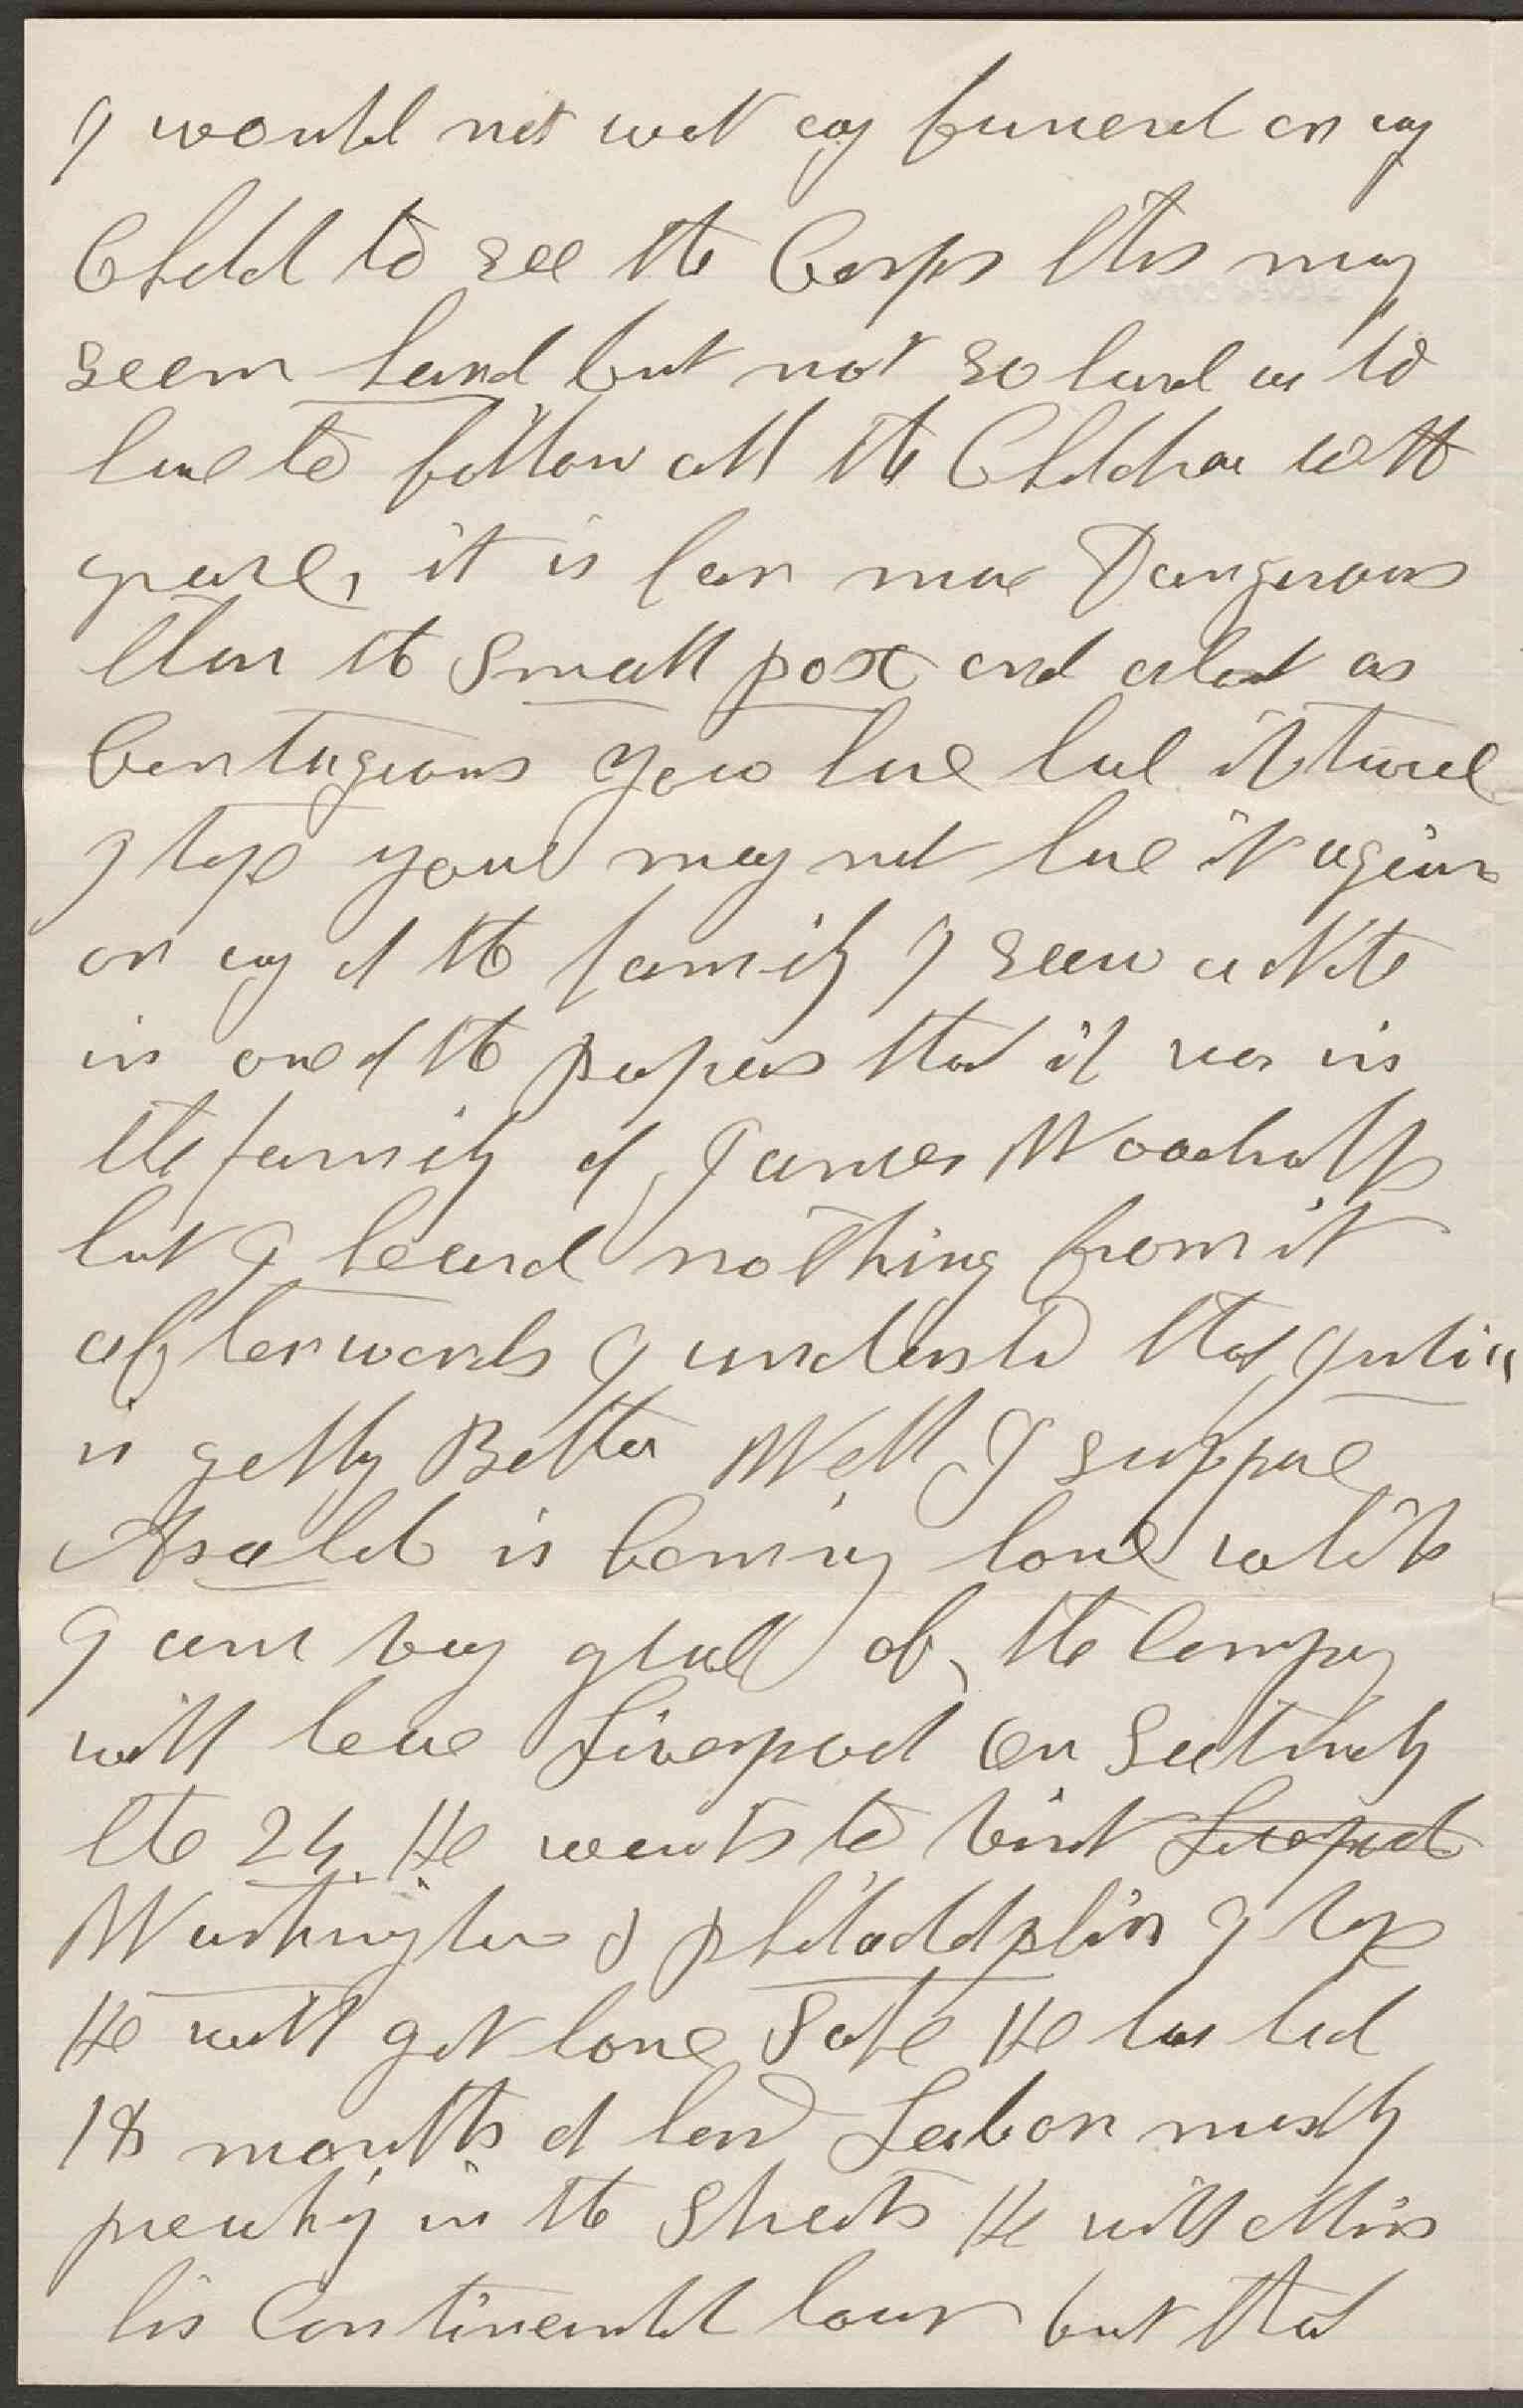 I would not wat any funeral or any
Child to see the Corps this may
seem hard but not so hard as to
have to follow all the Children to the
grave, it is far more Dangerous
than the Small pox and about as
Contagious you have had it twice
I hope youe may not have it again
or any of the family I seen a Note
in one of the papers that it was in
the family of James Woodruffs
but I heard nothing from it
afterwards I understd that
is getting Better Well I suppose
Asahel is Coming home
I am very glad of the Company
will leve Liverpool on Saturday
the 24. He wants to visit Liverpool
Washington & philadelphia I hope
He will get home Safe He has had
18 months of hard Labor mostly
preaching in the Streets He will
his Continental tour but that